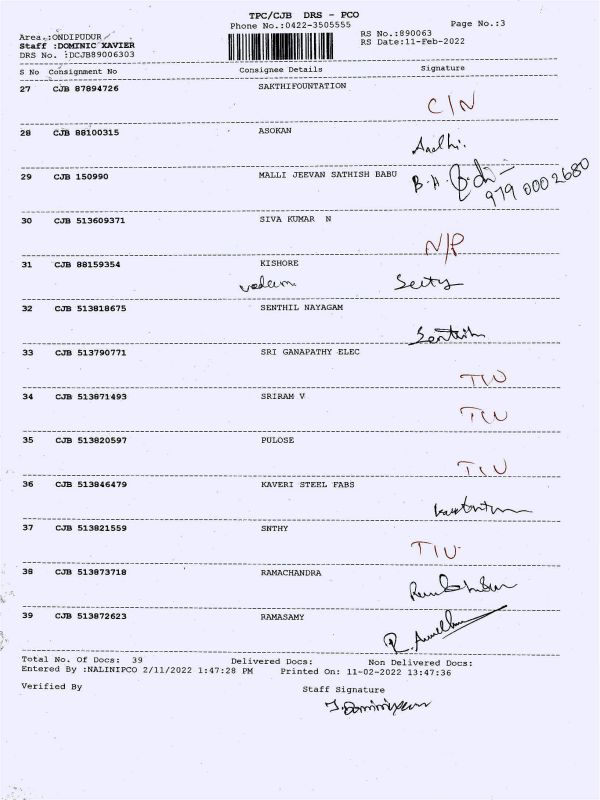 TPC/CJB DRS - PCO
Phone No.:0422-3505555
Page No.:3
Area :ONDIPUDUR
RS No.:890063
Staff :DOMINIC XAVIER
RS Date:11-Feb-2022
DRS No. :DCJB89006303
S No Consignment No Consignee Details Signature
27 CJB 87894726 SAKTHIFOUNTATION
C/N
28 CJB 88100315 ASOKAN
29 CJB 150990 MALLI JEEVAN SATHISH BABU
979 000 2680
30 CJB 513609371 SIVA KUMAR N
N/P
31 CJB 88159354 KISHORE
32 CJB 513818675 SENTHIL NAYAGAM
Senthil
33 CJB 513790771 SRI GANAPATHY ELEC
34 CJB 513871493 SRIRAM V
35 CJB 513820597 PULOSE
36 CJB 513846479 KAVERI STEEL FABS
37 CJB 513821559 SNTHY
38 CJB 513873718 RAMACHANDRA
39 CJB 513872623 RAMASAMY
Total No. Of Docs: 39 Delivered Docs: Non Delivered Docs:
Entered By :NALINIPCO 2/11/2022 1:47:28 PM Printed On: 11-02-2022 13:47:36
Verified By
Staff Signature